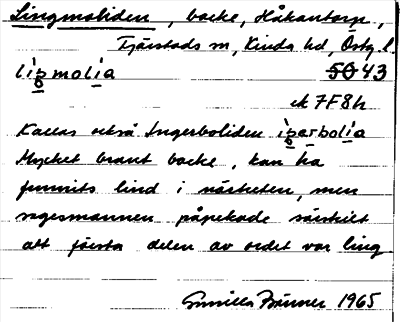 Lingmoliden, backe, Håkantorp,
Tjärstads sn, Kinda hd, Östg l.
liŋmolia 5043
ek 7F8h
Kallas också Ingerboliden iŋerbolia
Mycket brant backe, kan ha
funnits lind i närheten, men
sagesmannen påpekade särskilt
att första delen av ordet var ling
Gunilla Brünner 1965